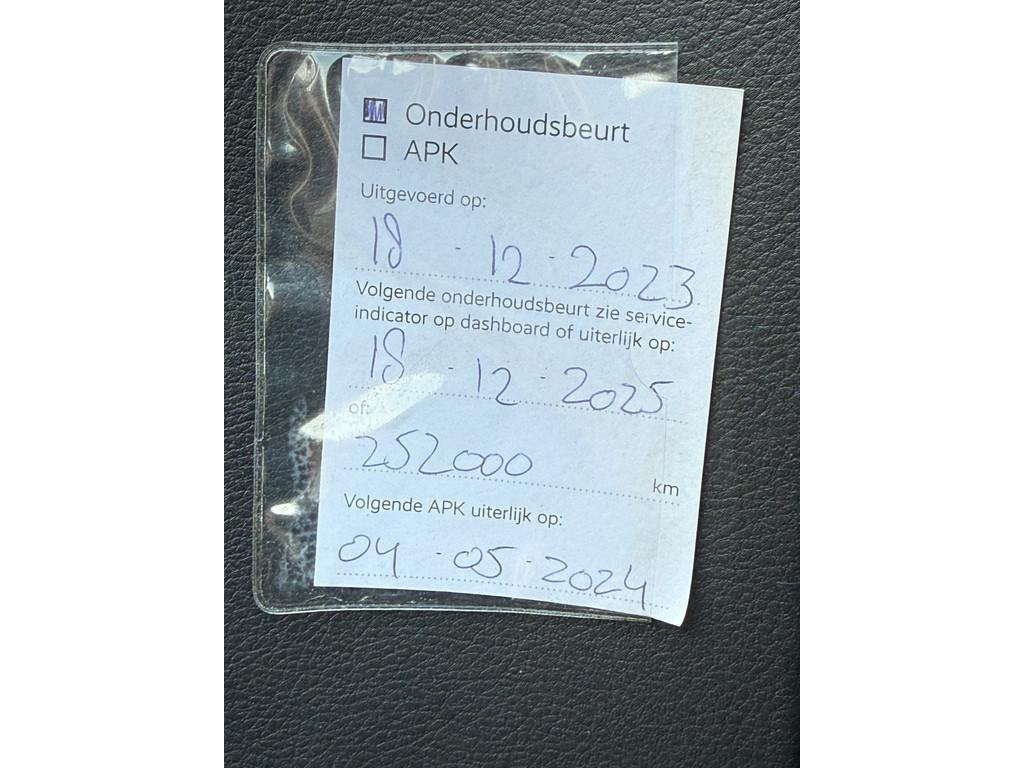 Onderhoudsbeurt
APK
Uitgevoerd op:
18 - 12 - 2023
Volgende onderhoudsbeurt zie service-
indicator op dashboard of uiterlijk op:
18 - 12 - 2025
of:
252000 km
Volgende APK uiterlijk op:
04 - 05 - 2024